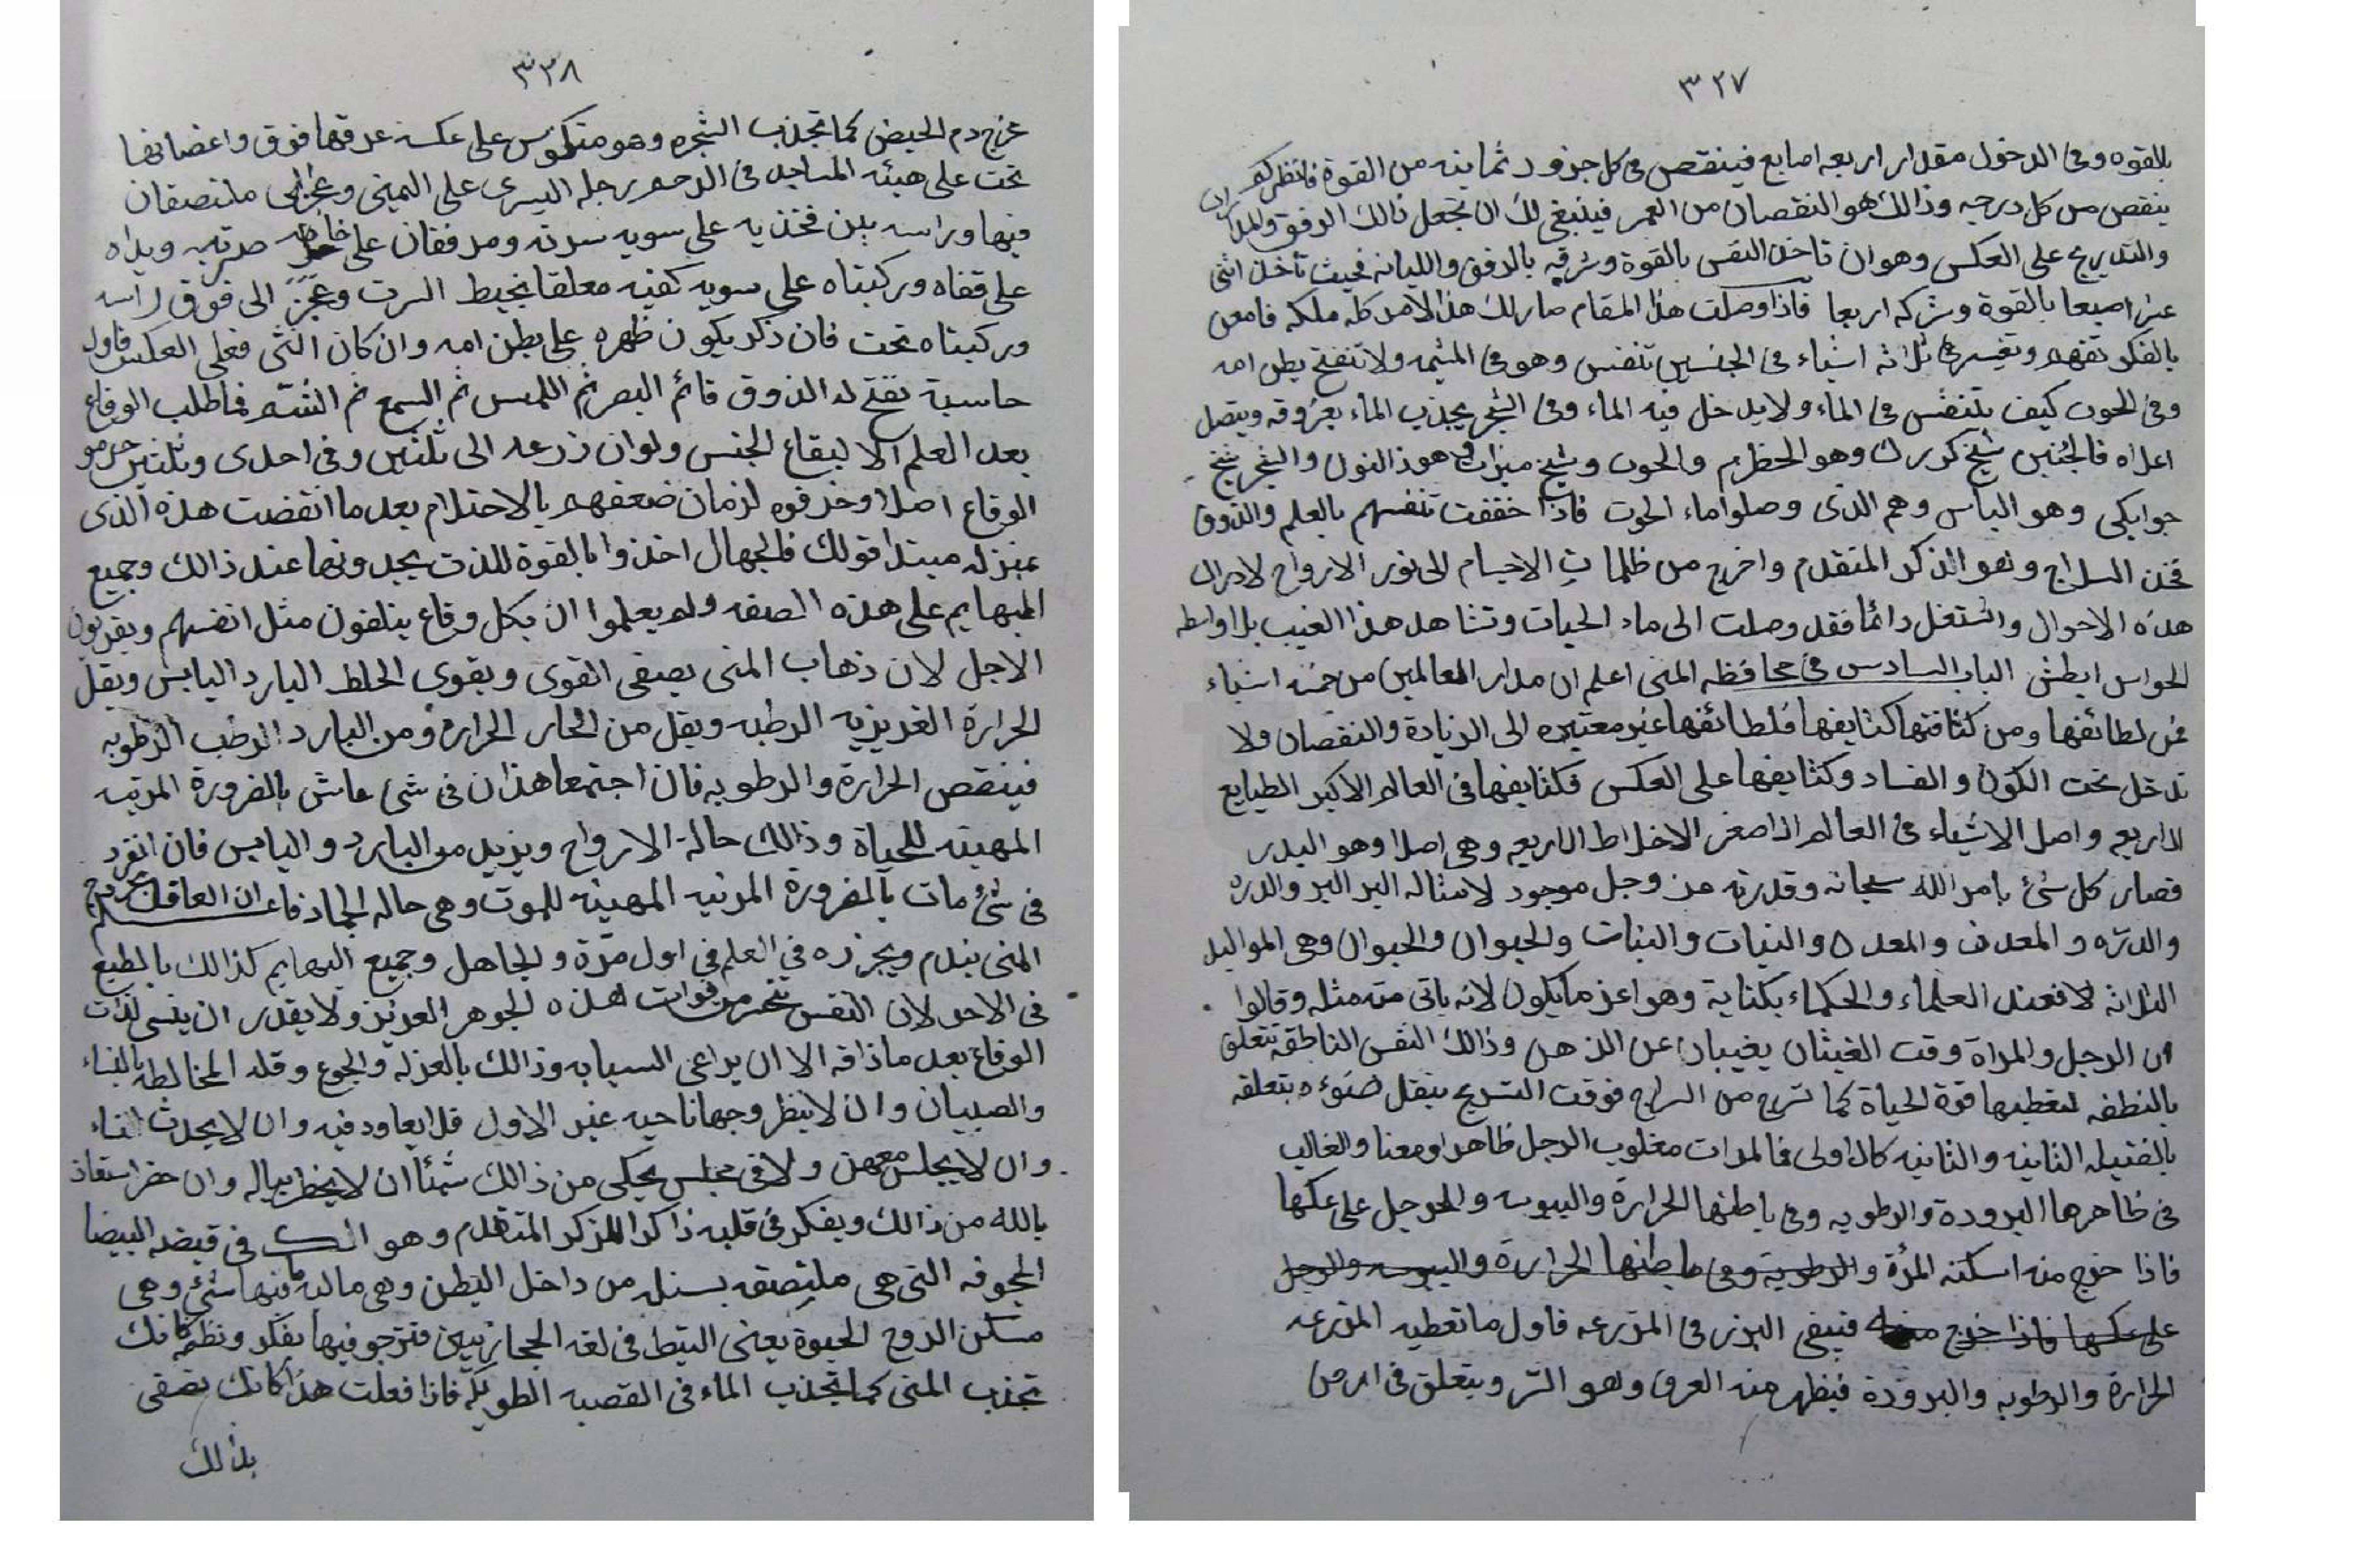 ٣٢٧
بالقوه وفي الدخول مقدار اربعه اصابع فينقص في كل جزو ثمانيه من القوة فانظركم ان
ينقص من كل درجه وذالك هو النقصان من العمر فينبغي لك ان تجعل ذالك الرفق
والتدريج على العكس وهو ان تاخذ النفس بالقوة وتتركه بالرفق والليانه بحيث تأخذ اثنى
عشر اصبعا بالقوة وتتركه اربعا فاذا وصلت هذا المقام صار لك هذا الامر كله ملكه فامعن
بالفكر تفهم وتفسيره في ثلاثه اشياء في الجنين تنفس وهو في المشيمه ولا تنفتح بطن امه
وفي الحوت كيف يتنفس في الماء ولا يدخل فيه الماء وفي الشجر يجذب الماء بعروقه ويتصل
اعلاه فالجنين شيخ كورك وهو الخظرم والحوت وشيخ هو ذالنون والشجر شيخ
جوابكي وهو الياس وهم الذي وصلوا ماء الحوت فاذا خففت تنفسهم بالعلم والذوق
فخذ السراج وهو الذكر المتقدم واخرج من ظلمات الاجسام الى نور الارواح لادراك
هذه الاحوال واشتغل دائما فقد وصلت الى ماء الحيات وتشاهد هذا الغيب بلا واسطه
الحواس ابطش الباب السادس في محافظه المنى اعلم ان مدار العالمين من خمسه اشياء
فمن لطائفها ومن كثافتها كثايفها فلطائفها غير معتبره الى الزيادة والنقصان ولا
تدخل تحت الكون والفساد وكثايفها على العكس فكثايفها في العالم الاكبر الطبايع
الاربعه واصل الاشياء في العالم الاصغر الاخلاط الاربعه وهي اصلا وهو البدر
فصار كل شئ بامر الله سبحانه وقدرته من وجل موجود لامثاله البر البر والدره
والدره والمعدن والمعدن والنبات والنبات والحيوان والحيوان وهى المواليد
الثلاثه لا فعند العلماء والحكماء بكناية وهو اعز ما يكون لانه ياتى منه مثله وقالوا
ان الرجل والمراة وقت الغيثان يغيبان عن الذهن وذالك النفس الناطقه تتعلق
بالنطفه لتعطيها قوة الحياة كما تسرج من السراج فوقت التسريج ينقل ضوءه بتعلقه
بالفتيله الثانيه والثانيه كالاولى فالمرات مغلوب الرجل ظاهرا ومعنا والغالب
في ظاهرها البرودة والرطوبه وفي باطنها الحرارة واليبوسه والرجل على عكسها
فاذا خرج منه اسكنه المرأة والرطوبه وفي باطنها الحرارة واليبوسه والرجل
على عكسها فاذا خرج منه فيبقى البزر في المزرعه فاول ما تعطيه المزرعه
الحرارة والرطوبه والبرودة فيظهر منه العرق وهو السر ويتعلق في الارض
٣٣٨
عزج دم الحيض كما تجذب الشجره وهو منكوس على عكسه عرقها فوق واعضانها
تحت على هيئه الساجد في الرحم رجله اليسرى على اليمنى ملتصقان
فيها وراسه بين فخذيه على سويه سرته ومرفقان على خاصرتيه ويداه
على قفاه وركبتاه على سويه كفيه معلقا بخيط السرت وعجز الى فوق راسه
وركبتاه تحت فان ذكر يكون ظهره على بطن امه وان كان انثى فعلى العكس فاول
حاسية تفتح له الذوق قائم البصر ثم اللمس ثم السمع ثم الشم فما طلب الوقاع
بعد العلم الا لبقاع الجنس ولوان زرعه الى ثلثين وفي احدى وثلثين حرمو
الوقاع اصلا وخذفوه لزمان ضعفهم بالاحتلام بعد ما انقضت هذه الذى
بمنزله مبتدا قولك فالجهال اخذوا بالقوة للذت يجدونها عند ذالك وجميع
البهايم على هذه الصفه ولم يعلموا ان بكل وقاع يتلفون مثل انفسهم ويقربون
الاجل لان ذهاب المنى يصفى القوى ويقوى الخلط البارد اليابس ويقل
الحرارة الغريزيه الرطبه ويقل من الحار الحرارة ومن البارد الرطب الرطوبه
فينقص الحرارة والرطوبه فان اجتمعا هذان في شئ عاش بالضرورة المرتبه
المهيته للحياة وذالك حالة الارواح ويزيد مو البارد واليابس فان انفرد
في شئ مات بالضرورة المرتبه المهيئه للموت وهى حاله الجماد فاعـ ان العاقل بخروج
المنى يندم ويجزره في العلم في اول مرة والجاهل وجميع البهايم كذالك بالطبع
في الاحد لان النفس تتخسر من فوات هذه الجوهر العزيز ولا يقدر ان ينسى لذات
الوقاع بعد ماذاقه الا ان يراعى السبابه وذالك بالعزله والجوع وقله المخالطه بالنساء
والصبيان وان لا ينظر وجها ناحيه غير الاول فلا يعاود فيه وان لا يحدث النساء
وان لا يجلس معهن ولا في مجلس يحكى من ذالك شئا ان لا يخطر بباله وان حضر استعاذ
بالله من ذالك ويفكر في قلبه ذاكرا للذكر المتقدم وهو في قبضه البيضا
المجوفه التى هى ملتصقه بسنله من داخل البطن وهى ماليه ما فيها شئ وهى
مسكن الروح الحيوة يعنى البتط في لغه الحجازيين فترجو فيها بفكر ونظر كانك
تجذب المنى كما تجذب الماء في القصبه الطويله فاذا فعلت هذا كانك تصفى
بذالك